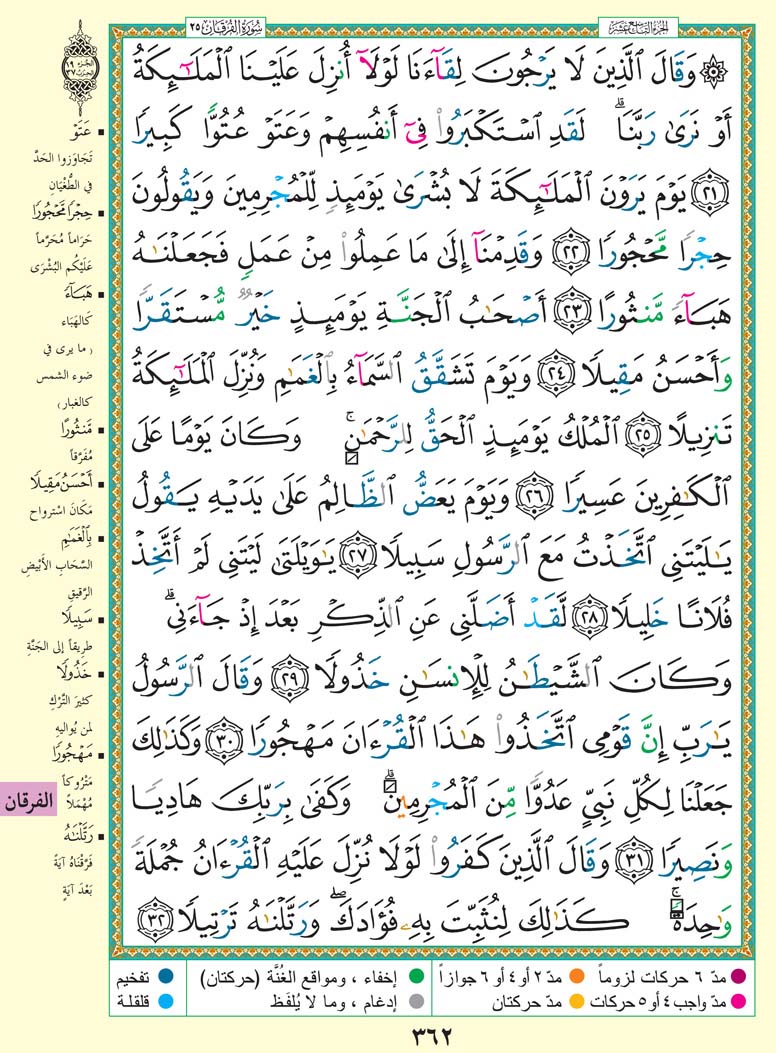 الجزء التاسع عشر
سُورَةُ الفُرقَان ٢٥
۞ وَقَالَ ٱلَّذِينَ لَا يَرْجُونَ لِقَآءَنَا لَوْلَآ أُنزِلَ عَلَيْنَا ٱلْمَلَٰٓئِكَةُ
أَوْ نَرَىٰ رَبَّنَا ۗ لَقَدِ ٱسْتَكْبَرُوا۟ فِىٓ أَنفُسِهِمْ وَعَتَوْ عُتُوًّا كَبِيرًا
٢١ يَوْمَ يَرَوْنَ ٱلْمَلَٰٓئِكَةَ لَا بُشْرَىٰ يَوْمَئِذٍ لِّلْمُجْرِمِينَ وَيَقُولُونَ
حِجْرًا مَّحْجُورًا ٢٢ وَقَدِمْنَآ إِلَىٰ مَا عَمِلُوا۟ مِنْ عَمَلٍ فَجَعَلْنَٰهُ
هَبَآءً مَّنثُورًا ٢٣ أَصْحَٰبُ ٱلْجَنَّةِ يَوْمَئِذٍ خَيْرٌ مُّسْتَقَرًّا
وَأَحْسَنُ مَقِيلًا ٢٤ وَيَوْمَ تَشَقَّقُ ٱلسَّمَآءُ بِٱلْغَمَٰمِ وَنُزِّلَ ٱلْمَلَٰٓئِكَةُ
تَنزِيلًا ٢٥ ٱلْمُلْكُ يَوْمَئِذٍ ٱلْحَقُّ لِلرَّحْمَٰنِ ۚ وَكَانَ يَوْمًا عَلَى
ٱلْكَٰفِرِينَ عَسِيرًا ٢٦ وَيَوْمَ يَعَضُّ ٱلظَّالِمُ عَلَىٰ يَدَيْهِ يَقُولُ
يَٰلَيْتَنِى ٱتَّخَذْتُ مَعَ ٱلرَّسُولِ سَبِيلًا ٢٧ يَٰوَيْلَتَىٰ لَيْتَنِى لَمْ أَتَّخِذْ
فُلَانًا خَلِيلًا ٢٨ لَّقَدْ أَضَلَّنِى عَنِ ٱلذِّكْرِ بَعْدَ إِذْ جَآءَنِى ۗ
وَكَانَ ٱلشَّيْطَٰنُ لِلْإِنسَٰنِ خَذُولًا ٢٩ وَقَالَ ٱلرَّسُولُ
يَٰرَبِّ إِنَّ قَوْمِى ٱتَّخَذُوا۟ هَٰذَا ٱلْقُرْءَانَ مَهْجُورًا ٣٠ وَكَذَٰلِكَ
جَعَلْنَا لِكُلِّ نَبِىٍّ عَدُوًّا مِّنَ ٱلْمُجْرِمِينَ ۗ وَكَفَىٰ بِرَبِّكَ هَادِيًا
وَنَصِيرًا ٣١ وَقَالَ ٱلَّذِينَ كَفَرُوا۟ لَوْلَا نُزِّلَ عَلَيْهِ ٱلْقُرْءَانُ جُمْلَةً
وَٰحِدَةً ۚ كَذَٰلِكَ لِنُثَبِّتَ بِهِۦ فُؤَادَكَ ۖ وَرَتَّلْنَٰهُ تَرْتِيلًا ٣٢
الجزء ١٩
الحزب ٣٧
▪ عَتَوْ
تَجَاوَزوا الحَدَّ
في الطُّغْيَانِ
▪ حِجْرًا مَّحْجُورًا
حَرَاماً مُحَرَّماً
عَلَيْكُم البُشْرَى
▪ هَبَآءً
كالهَبَاء
( ما يرى في
ضوء الشمس
كالغبار )
▪ مَّنثُورًا
مُفَرَّقاً
▪ أَحْسَنُ مَقِيلًا
مَكَانَ استرواح
▪ بِٱلْغَمَٰمِ
السَّحَابِ الأَبْيَضِ
الرَّقِيقِ
▪ سَبِيلًا
طريقاً إلى الجَنَّةِ
▪ خَذُولًا
كثيرَ التَّرْكِ
لمن يُواليهِ
▪ مَهْجُورًا
مَتْرُوكاً
مُهْمَلاً
▪ رَتَّلْنَٰهُ
فَرَّقْنَاهُ آيَةً
بَعْدَ آيَةٍ
الفرقان
مدّ ٦ حركات لزوماً مدّ ٢ أو ٤ أو ٦ جوازاً إخفاء ، ومواقع الغُنَّة (حركتان) تفخيم
مدّ واجب ٤ أو ٥ حركات مدّ حركتان إدغام ، وما لا يُلفَظ قلقلة
٣٦٢